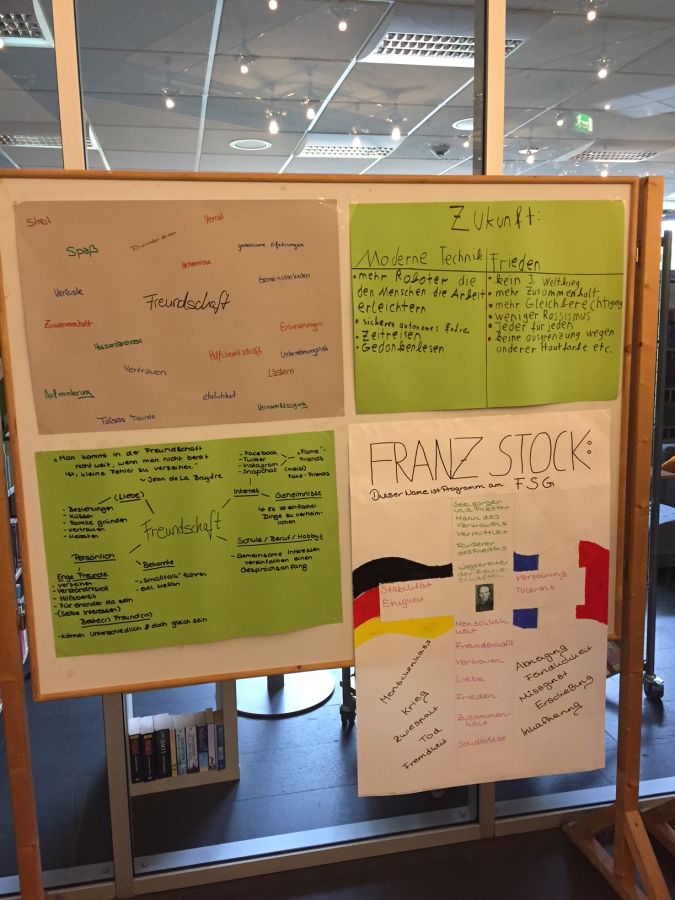 Streit
Verrat
Spaß
gemeinsame Erfahrungen
Geheimnisse
Gemeinsamkeiten
Verluste
Freundschaft
Zusammenhalt
Erinnerungen
Hilfsbereitschaft
Vertrauen
Lästern
Aufmunterung
ehrlichkeit
Zukunft:
Moderne Technik
• mehr Roboter die
den Menschen die Arbeit
erleichtern
• sicheres autonomes fahren
• Zeitreisen
• Gedankenlesen
Frieden
• kein 3. Weltkrieg
• mehr Zusammenhalt
• mehr Gleichberechtigung
• weniger Rassismus
• Jeder für jeden
• keine ausgrenzung wegen
anderer Hautfarbe etc.
„Man kommt in der Freundschaft
nicht weit, wenn man nicht bereit
ist, kleine Fehler zu verzeihen."
~ Jean de La Bruyère
(Liebe)
- Beziehungen
- Küssen
- Familie gründen
- Vertrauen
- Heiraten
- Facebook
- Twitter
- Instagram
- Snapchat
„Fame"-
Friends
(meist)
Fake-Friends
Internet
Geheimnisse
↳ es ist einfacher
Dinge zu verheim-
lichen
Freundschaft
Schule / Beruf / Hobby
- Gemeinsame Interessen
vereinfachen einen
Gesprächsanfang
Persönlich
Enge Freunde
- verzeihen
- Verständnisvoll
- Hilfsbereit
- Für einander da sein
- (Selbe Interessen)
Beste(r) Freund(in)
- können Unterschiedlich & doch gleich sein
Bekannte
- „Smalltalk" führen
- evtl. treffen
FRANZ STOCK:
Dieser Name ist Programm am FSG
Seelsorger
und Priester
Mann des
Vertrauens
Vermittler
Förderer
des Friedens
Wegbereiter
der Freund
schaften
Stabilität
Einigkeit
Versöhnung
Toleranz
Menschlich
keit
Freundschaft
Vertrauen
Liebe
Frieden
Zusammen-
halt
Solidarität
Menschenhass
Krieg
Zwiespalt
Tod
Fremdheit
Abneigung
Feindlichkeit
Missgunst
Erschießung
Inhaftierung